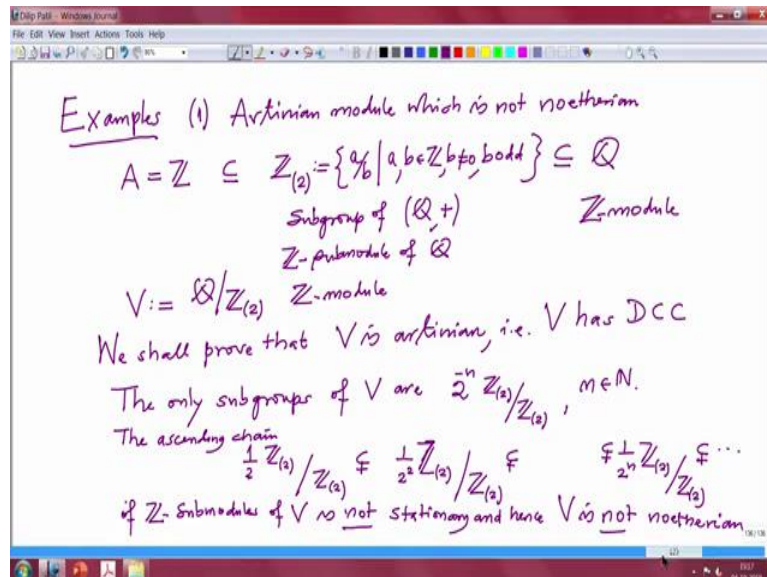 Dilip Patil - Windows Journal
File Edit View Insert Actions Tools Help
Examples (1) Artinian module which is not noetherian
A = ℤ ⊆ ℤ₍₂₎ := {a/b | a, b ∈ ℤ, b ≠ 0, b odd} ⊆ ℚ
Subgroup of (ℚ, +) ℤ-module
ℤ-submodule of ℚ
V := ℚ/ℤ₍₂₎ ℤ-module
We shall prove that V is artinian, i.e. V has DCC
The only subgroups of V are 2⁻ⁿ ℤ₍₂₎/ℤ₍₂₎, n ∈ ℕ.
The ascending chain
1/2 ℤ₍₂₎/ℤ₍₂₎ ⊊ 1/2² ℤ₍₂₎/ℤ₍₂₎ ⊊ ⊊ 1/2ⁿ ℤ₍₂₎/ℤ₍₂₎ ⊊ ...
of ℤ-submodules of V is not stationary and hence V is not noetherian